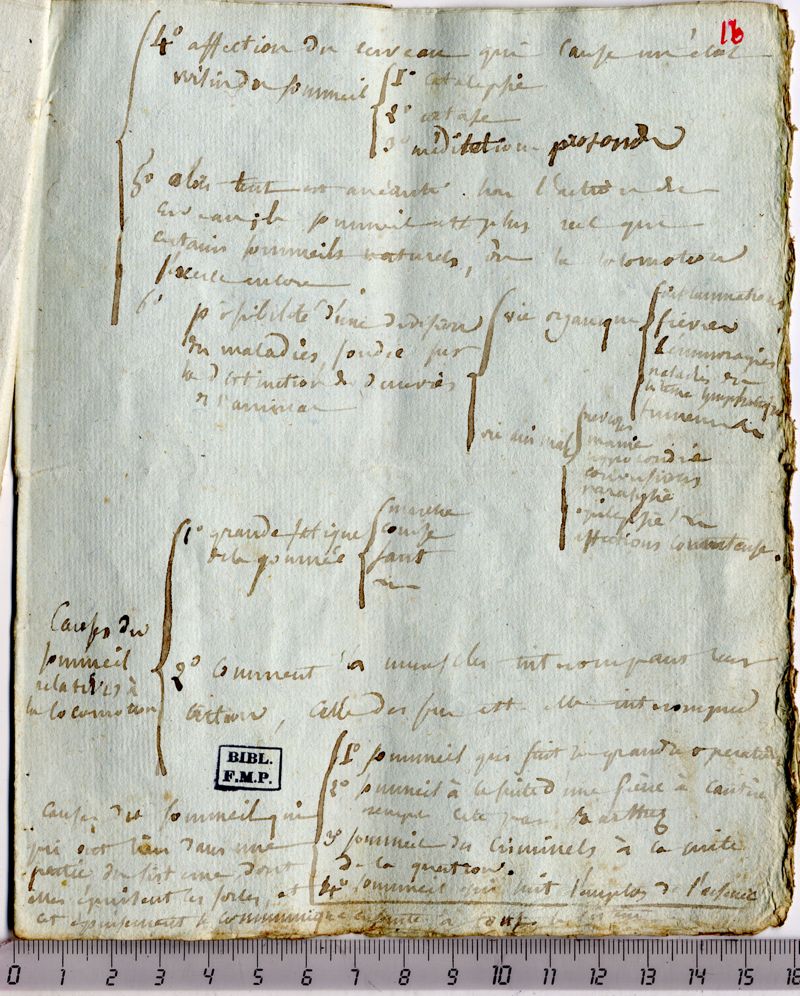 13
4° affection du cerveau qui cause un état
voisin du sommeil
1° catalepsie
2° extase
3° méditation profonde
5° alors tout est anéanti hors l'action du
cerveau; le sommeil est plus réel que
certains sommeils naturels, où la locomotion
s'exerce encore
6° possibilité d'une division
des maladies, fondée sur
la distinction des deux vies
de l'animal
vie organique
inflammations
fièvres
hémorragies
maladies du
système lymphatique
tumeurs &c
vie animal
manie
hypocondrie
convulsions
paraplégie
épilepsie &c
affections comateuse.
Causes du
sommeil
relatives à
la locomotion
1° grande fatigue
de la journée
marche
course
saut
&c
2° Comment les muscles interrompant leur
action, celle des est elle interrompue
BIBL.
F.M.P.
causes du sommeil qui
qui ont lieu dans une
partie du sistème dont
elles épuisent les forces, et
cet épuisement se communique ensuite à tout le sistème
1° sommeil qui suit les grandes opérations
2° sommeil à la suite d'une
cité par Barthez
3° sommeil des Criminels à la suite
de la question.
4° sommeil qui suit l'emploi de
0 1 2 3 4 5 6 7 8 9 10 11 12 13 14 15 16